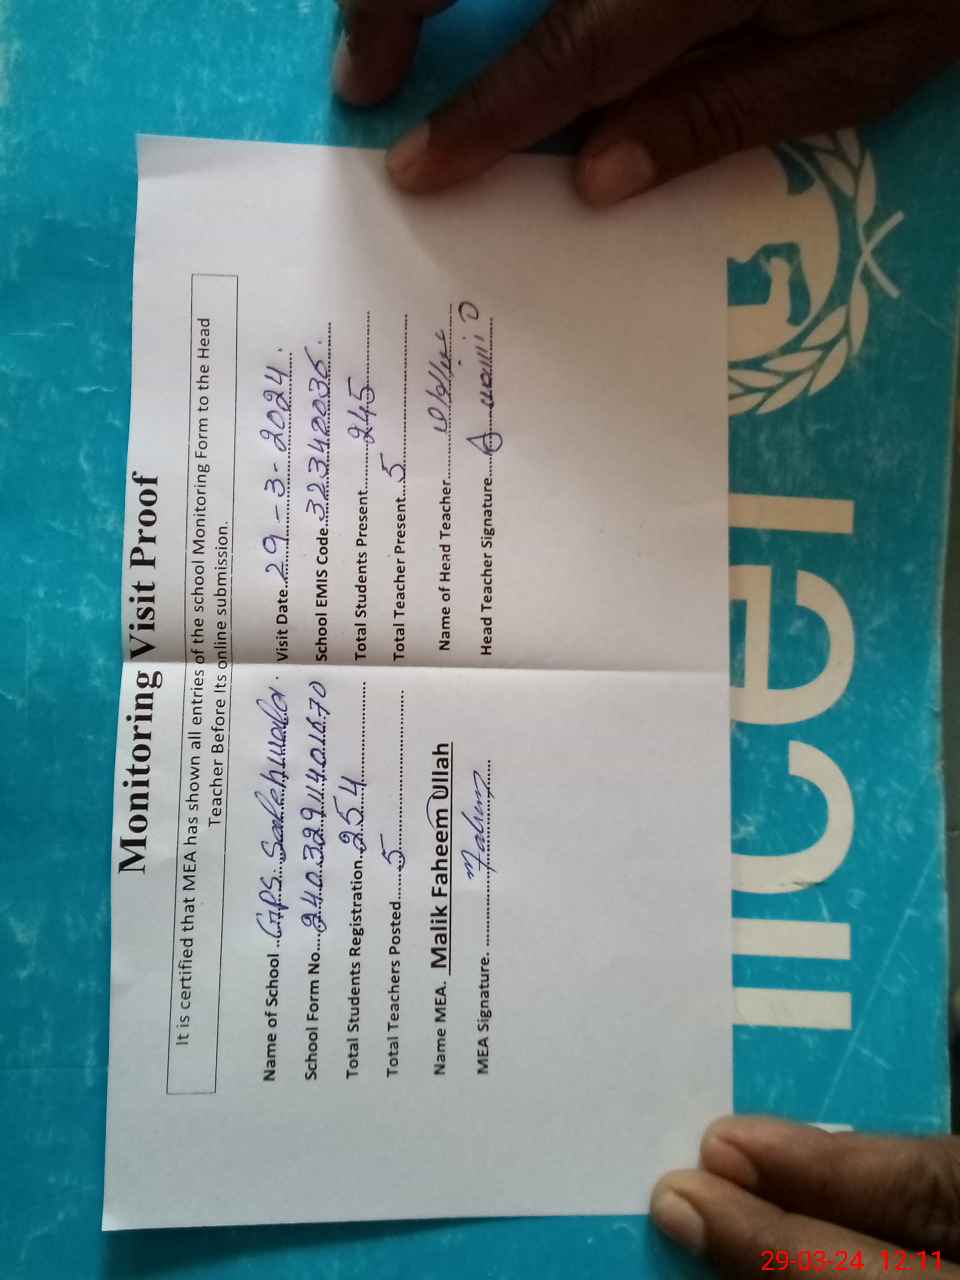 Monitoring Visit Proof
It is certified that MEA has shown all entries of the school Monitoring Form to the Head
Teacher Before Its online submission.
Name of School ..GPS Salehwala. Visit Date..29-3-2024.
School Form No....240329114101670 School EMIS Code..32340036.
Total Students Registration.254 Total Students Present......245
Total Teachers Posted......5 Total Teacher Present...5
Name MEA. Malik Faheem Ullah Name of Head Teacher
MEA Signature. Head Teacher Signature
nicef
29-03-24 12:11